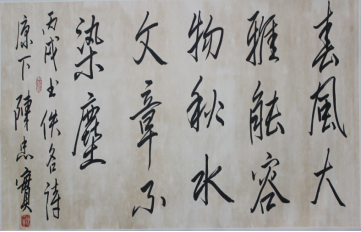 春風大
雅能容
物秋水
文章不
染塵
丙戌書佚名詩
原下陳忠實